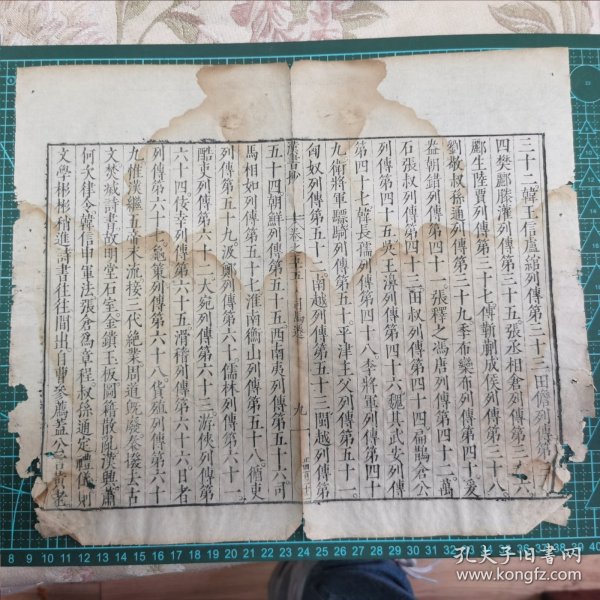 三十二韓王信盧綰列傳第三十三田儋列傳第
四樊酈滕灌列傳第三十五張丞相倉列傳第三十六
酈生陸賈列傳第三十七傅靳蒯成侯列傳第三十八
劉敬叔孫通列傳第三十九季布欒布列傳第四十爰
盎朝錯列傳第四十一張釋之馮唐列傳第四十二萬
石張叔列傳第四十三田叔列傳第四十四扁鵲倉公
列傳第四十五吳王濞列傳第四十六魏其武安列傳
第四十七韓長孺列傳第四十八李將軍列傳第四十
九衛將軍驃騎列傳第五十平津主父列傳第五十一
匈奴列傳第五十二南越列傳第五十三閩越列傳第
漢書鈔 卷之五十五 司馬遷 九
五十四朝鮮列傳第五十五西南夷列傳第五十六司
馬相如列傳第五十七淮南衡山列傳第五十八循吏
列傳第五十九汲鄭列傳第六十儒林列傳第六十一
酷吏列傳第六十二大宛列傳第六十三游俠列傳第
六十四佞幸列傳第六十五滑稽列傳第六十六日者
列傳第六十七龜策列傳第六十八貨殖列傳第六十
九惟漢繼五帝末流接三代絕業周道既廢秦撥去古
文焚滅詩書故明堂石室金鐀玉版圖籍散亂漢興蕭
何次律令韓信申軍法張倉為章程叔孫通定禮儀則
文學彬彬稍進詩書往往間出自曹參薦蓋公言黃老
8 9 10 11 12 13 14 15 16 17 18 19 20 21 22 23 24 25 26 27 28 29 30 31 32 33 34 35 36 37 38 39 40
孔夫子旧书网
www.kongfz.com